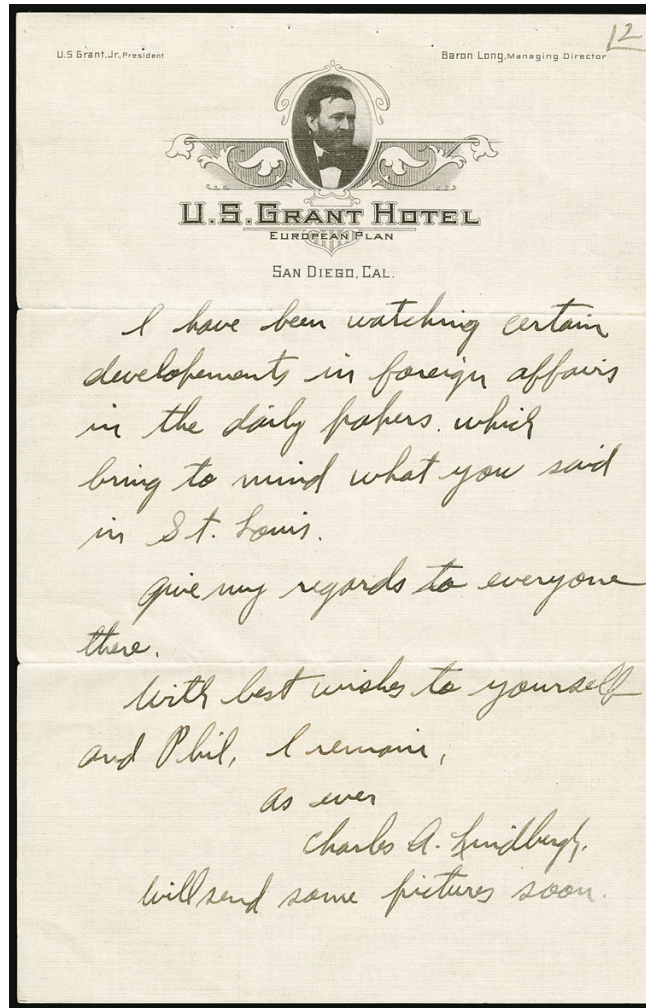 12
U.S Grant, Jr. President
Baron Long, Managing Director
U.S. GRANT HOTEL
EUROPEAN PLAN
SAN DIEGO, CAL.
I have been watching certain
developements in foreign affairs
in the daily papers. which
bring to mind what you said
in St. Louis.
Give my regards to everyone
there.
With best wishes to yourself
and Phil, I remain,
as ever
Charles A. Lindbergh.
Will send some pictures soon.